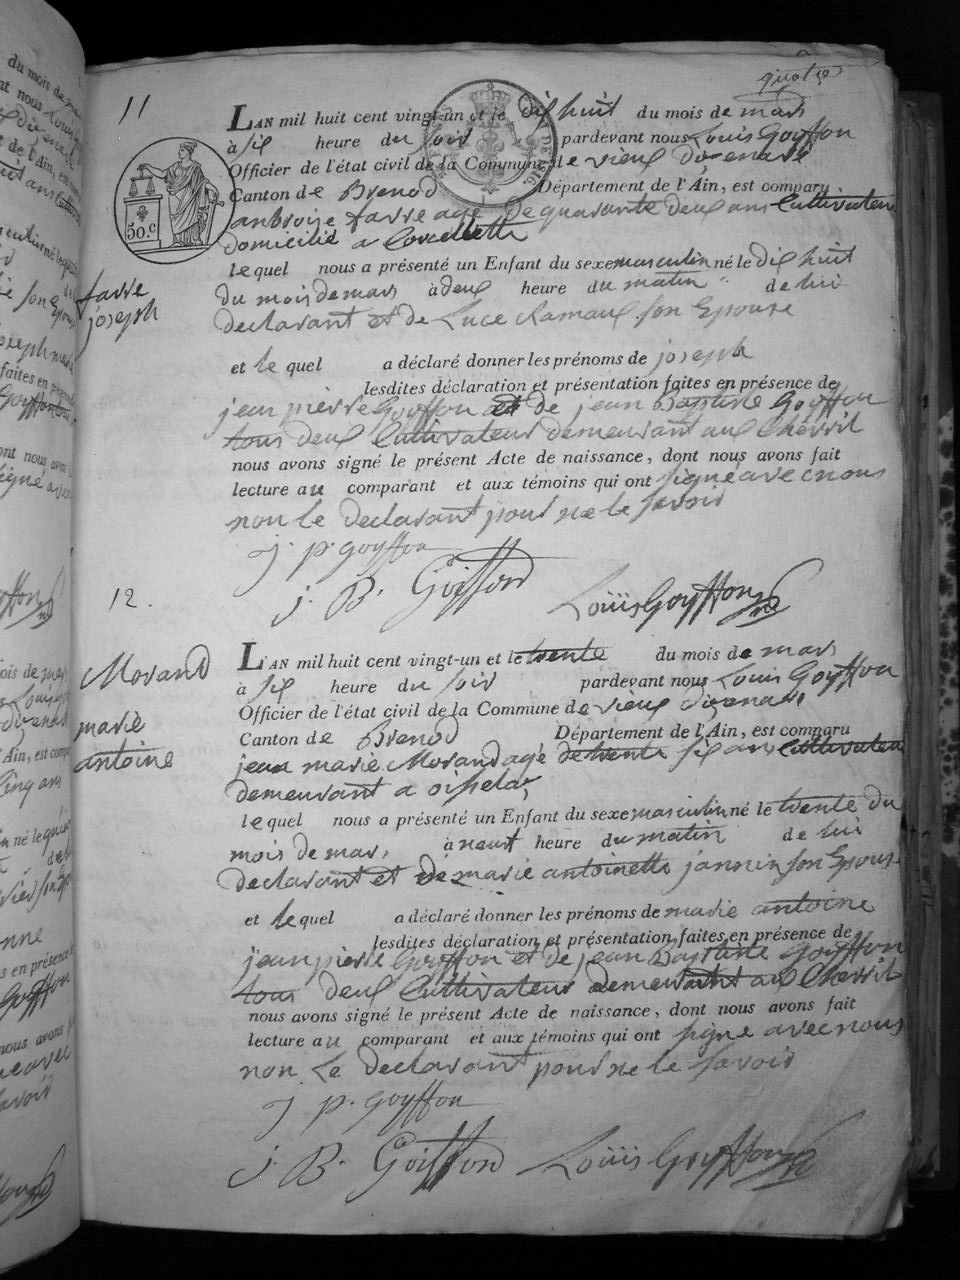 quatre
11
LAN mil huit cent vingt-un et le dix huit du mois de mars
à six heure du soir pardevant nous Louis Goyffon
Officier de l'état civil de la Commune de vieux d'izenave
Canton de Brenod Département de l'Ain, est comparu
ambroise favre age de quarante deux ans Cultivateur
domicilié a Corcelette
50.c
le quel nous a présenté un Enfant du sexe masculin né le dix huit
du mois de mars à deux heure du matin de lui
declarant et de Luce Ramaux son Epouse
favre
joseph
et le quel a déclaré donner les prénoms de joseph
lesdites déclaration et présentation faites en présence de
jean pierre Goyffon et de jean Baptiste Goyffon
tous deux Cultivateurs demeurant aux Chevril
nous avons signé le présent Acte de naissance, dont nous avons fait
lecture au comparant et aux témoins qui ont signé avec nous
non le declarant pour ne le savoir
j. p. goyffon
j. B. Goiffon Louis Goyffon
12.
L'AN mil huit cent vingt-un et le trente du mois de mars
à six heure du soir pardevant nous Louis Goyffon
Officier de l'état civil de la Commune de vieux d'izenave
Canton de Brenod Département de l'Ain, est comparu
jean marie Morand agé de trente six ans Cultivateur
demeurant a oisselaz
Morand
marie
antoine
le quel nous a présenté un Enfant du sexe masculin né le trente du
mois de mars à neuf heure du matin de lui
declarant et de marie antoinette jannin son Epouse
et le quel a déclaré donner les prénoms de marie antoine
lesdites déclaration et présentation faites en présence de
jean pierre Goyffon et de jean Baptiste Goyffon
tous deux Cultivateurs demeurant aux Chevril
nous avons signé le présent Acte de naissance, dont nous avons fait
lecture au comparant et aux témoins qui ont signé avec nous
non Le declarant pour ne le savoir
j p. goyffon
j. B. Goiffon Louis Goyffon